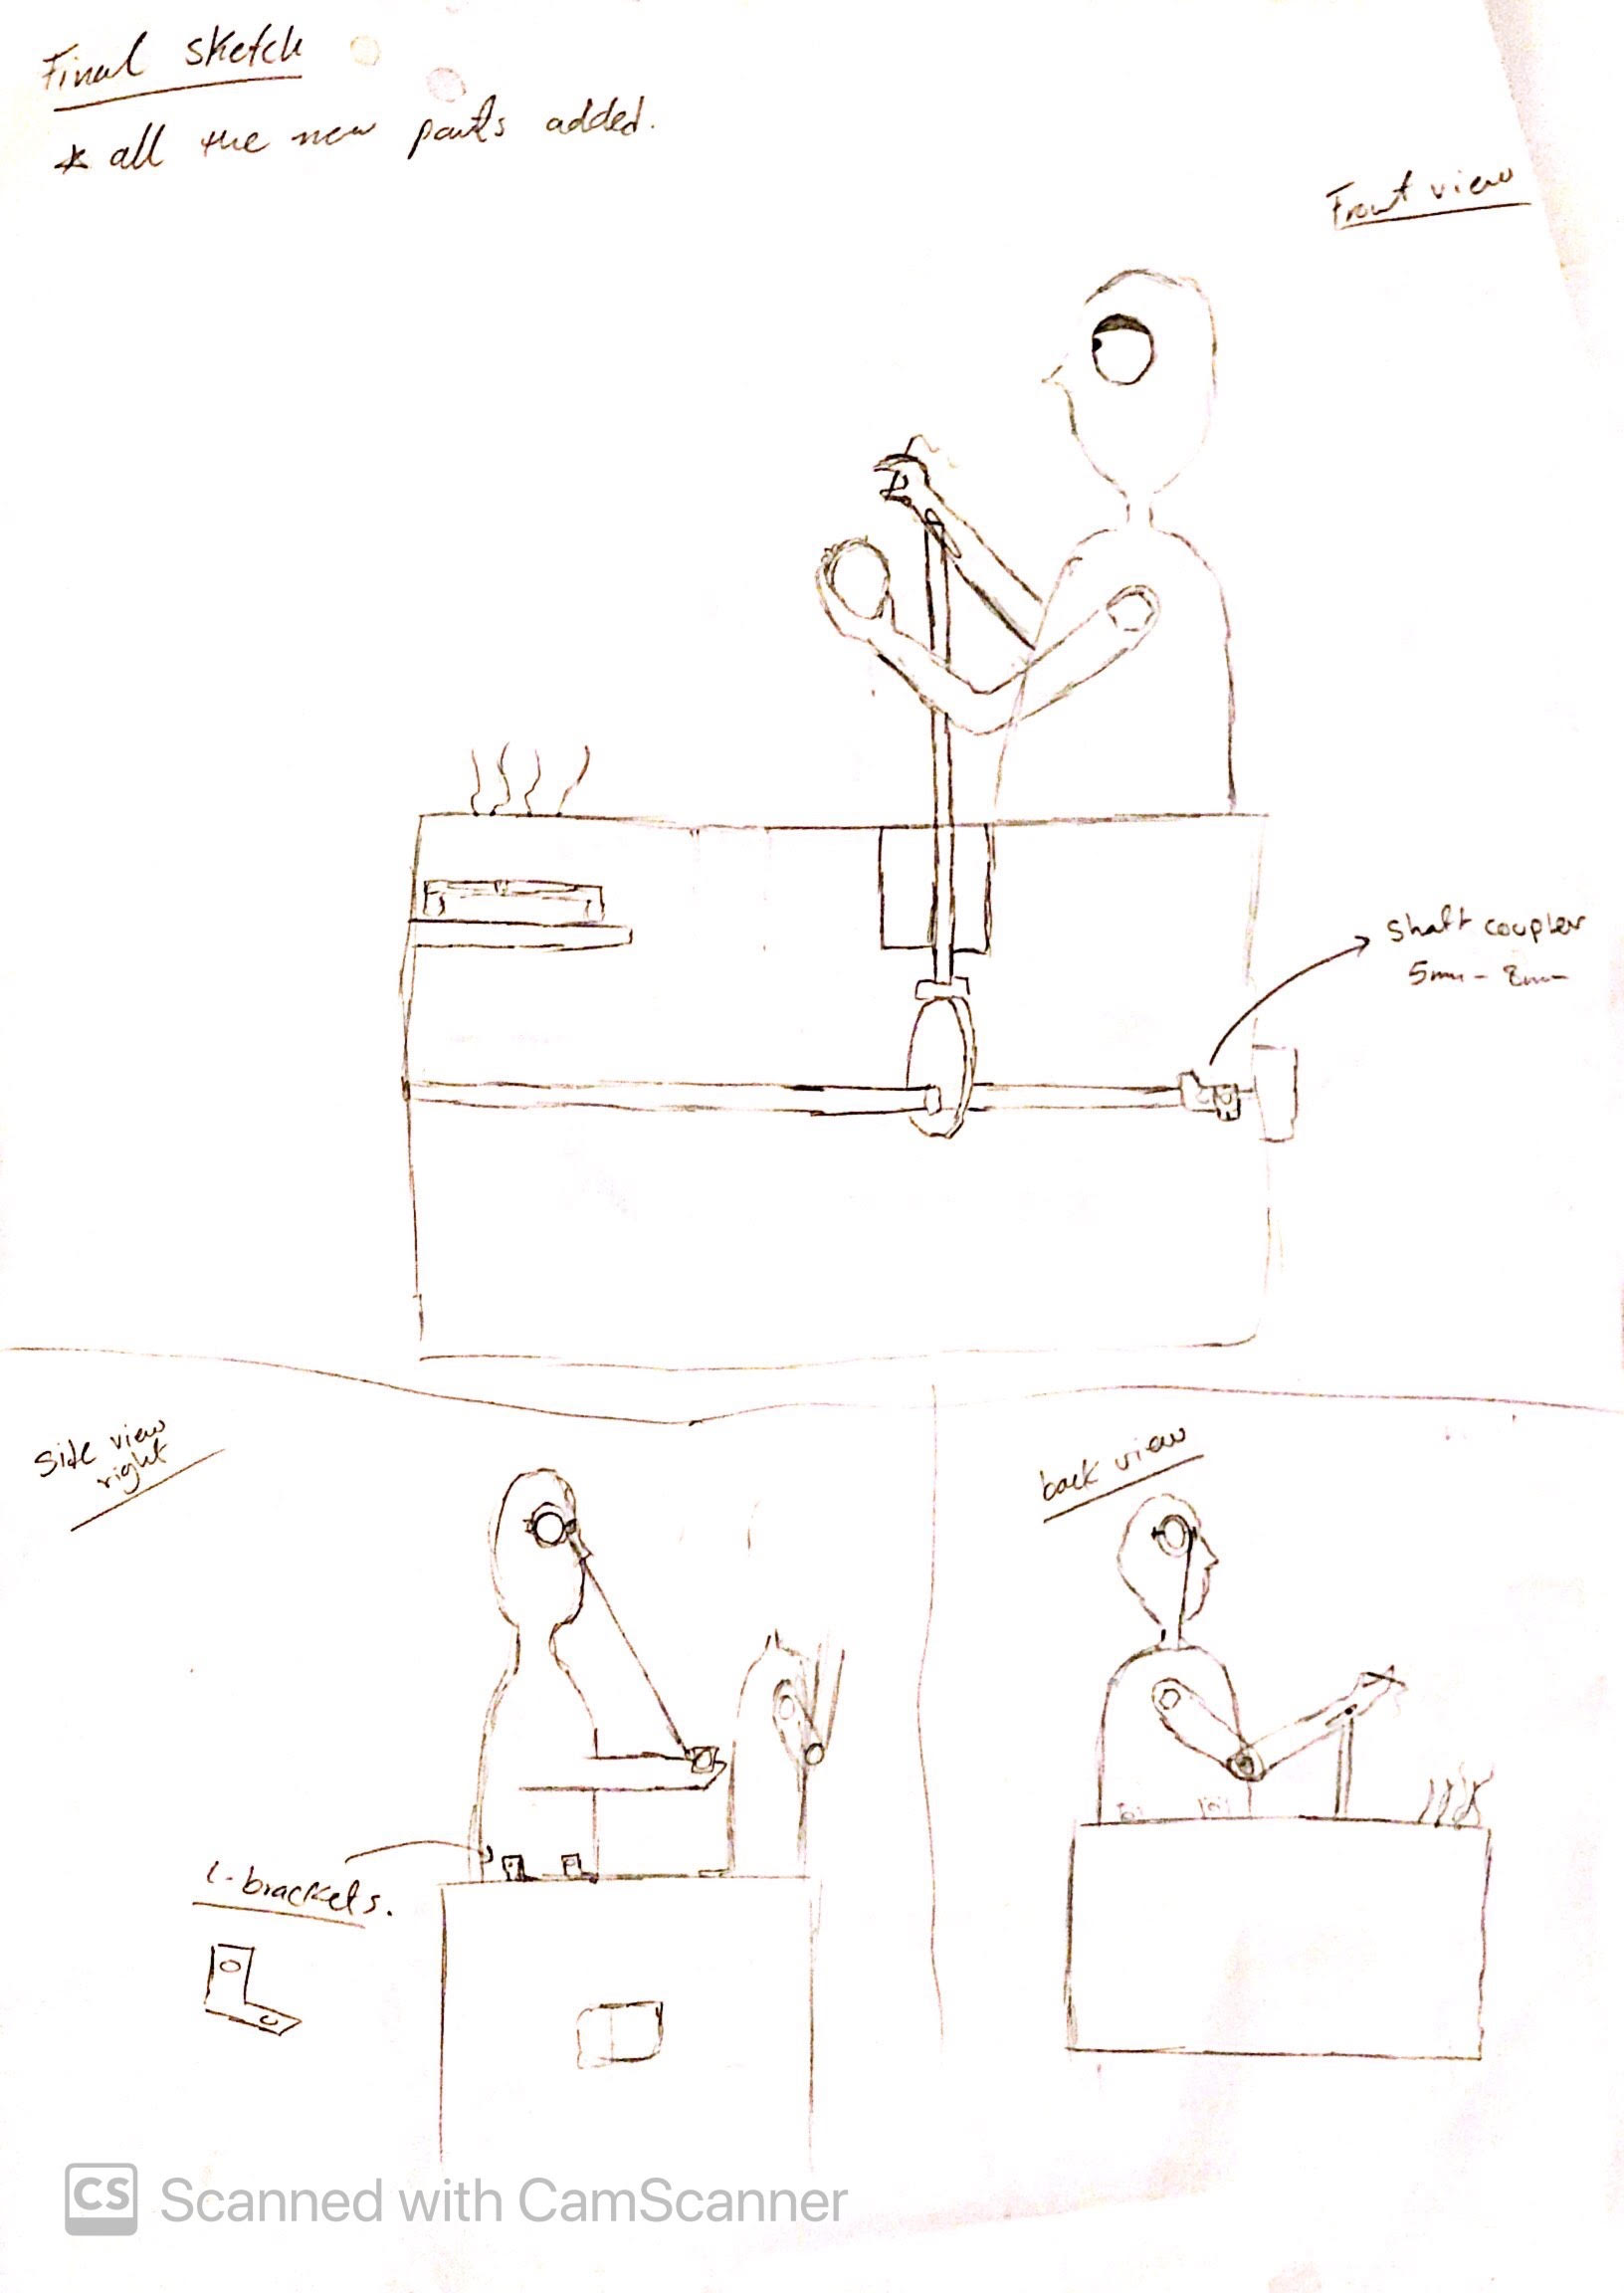 Final sketch
* all the new parts added.
Front view
shaft coupler
5mm - 8mm
Side view
right
back view
L-brackets.
CS Scanned with CamScanner